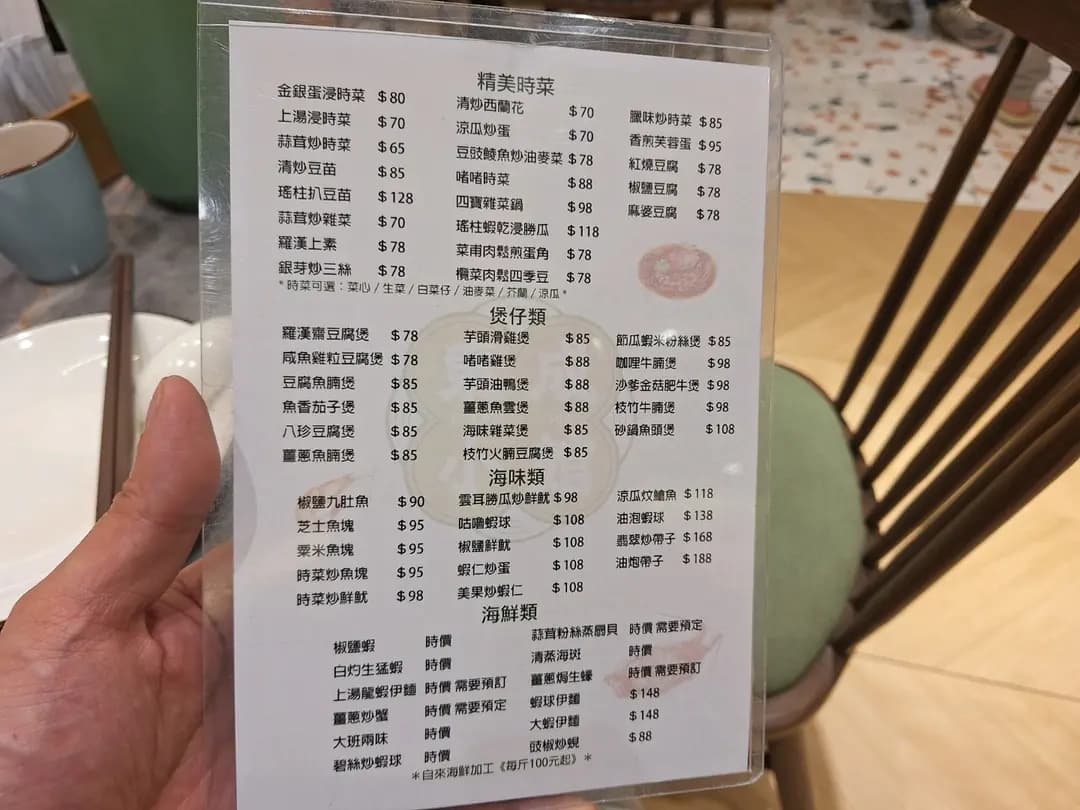 精美時菜
金銀蛋浸時菜 $80
上湯浸時菜 $70
蒜茸炒時菜 $65
清炒豆苗 $85
瑤柱扒豆苗 $128
蒜茸炒雜菜 $70
羅漢上素 $78
銀芽炒三絲 $78
清炒西蘭花 $70
涼瓜炒蛋 $70
豆豉鯪魚炒油麥菜 $78
啫啫時菜 $88
四寶雜菜鍋 $98
瑤柱蝦乾浸勝瓜 $118
菜甫肉鬆煎蛋角 $78
欖菜肉鬆四季豆 $78
臘味炒時菜 $85
香煎芙蓉蛋 $95
紅燒豆腐 $78
椒鹽豆腐 $78
麻婆豆腐 $78
*時菜可選：菜心/生菜/白菜仔/油麥菜/芥蘭/涼瓜*
煲仔類
羅漢齋豆腐煲 $78
咸魚雞粒豆腐煲 $78
豆腐魚腩煲 $85
魚香茄子煲 $85
八珍豆腐煲 $85
薑蔥魚腩煲 $85
芋頭滑雞煲 $85
啫啫雞煲 $88
芋頭油鴨煲 $88
薑蔥魚雲煲 $88
海味雜菜煲 $85
枝竹火腩豆腐煲 $85
節瓜蝦米粉絲煲 $85
咖哩牛腩煲 $98
沙爹金菇肥牛煲 $98
枝竹牛腩煲 $98
砂鍋魚頭煲 $108
海味類
椒鹽九肚魚 $90
芝士魚塊 $95
粟米魚塊 $95
時菜炒魚塊 $95
時菜炒鮮魷 $98
雲耳勝瓜炒鮮魷 $98
咕嚕蝦球 $108
椒鹽鮮魷 $108
蝦仁炒蛋 $108
美果炒蝦仁 $108
涼瓜炆鱠魚 $118
油泡蝦球 $138
翡翠炒帶子 $168
油炮帶子 $188
海鮮類
椒鹽蝦 時價
白灼生猛蝦 時價
上湯龍蝦伊麵 時價 需要預訂
薑蔥炒蟹 時價 需要預定
大班兩味 時價
碧絲炒蝦球 時價
蒜茸粉絲蒸扇貝 時價 需要預定
清蒸海斑 時價
薑蔥焗生蠔 時價 需要預訂
蝦球伊麵 $148
大蝦伊麵 $148
豉椒炒蜆 $88
*自來海鮮加工《每斤100元起》*